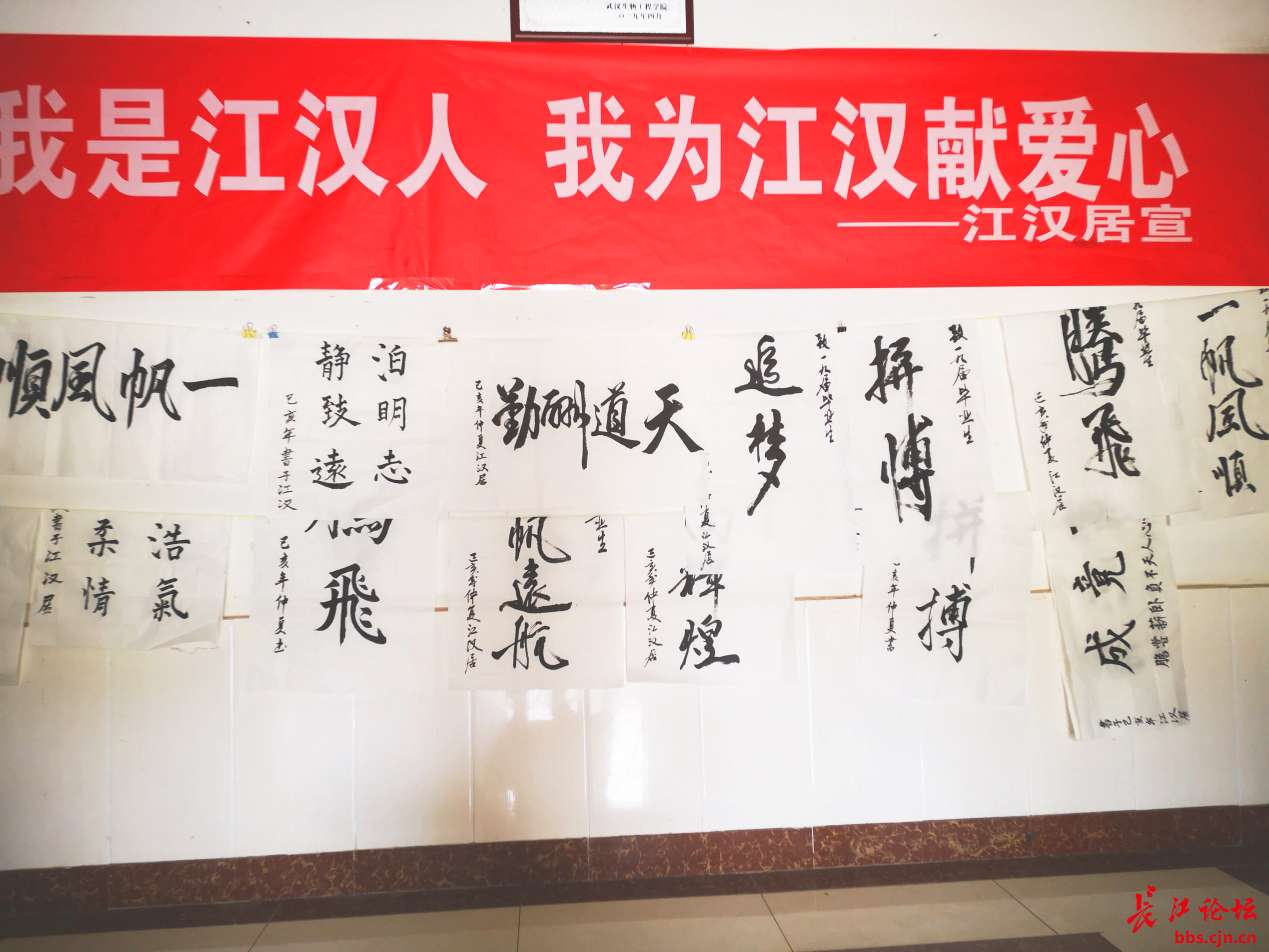 武汉生物工程学院
二〇一九年四月
我是江汉人 我为江汉献爱心
——江汉居宣
一帆风順
泊明志
静致遠
己亥年書于江汉
天道酬勤
己亥年仲夏江汉居
致一九届毕业生
追梦
致一九届毕业生
拼博
九届毕业生
騰飛
己亥年仲夏江汉居
一帆风順
浩氣
柔情
書于江汉居
飛
己亥年仲夏书
业生
帆遠航
己亥年仲夏江汉居
夏江汉居
輝煌
己亥年仲夏江汉居
拼搏
己亥年仲夏書
竟成
卧薪尝胆
書于己亥年江汉居
长江论坛
bbs.cjn.cn